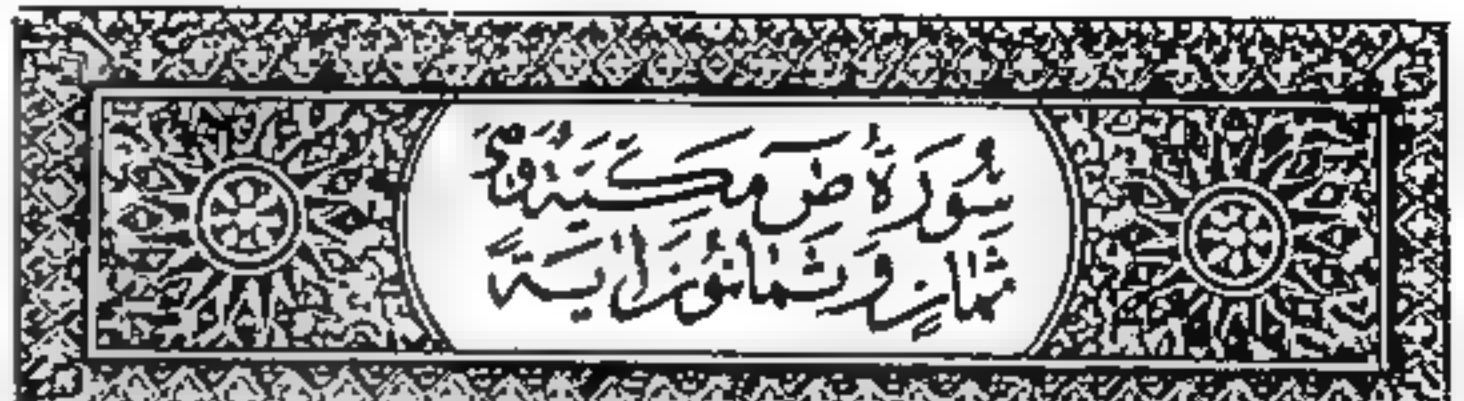 سُورَةُ صٓ مَكِّيَّةٌ وَهِيَ
ثَمَانٍ وَثَمَانُونَ اٰيَةً